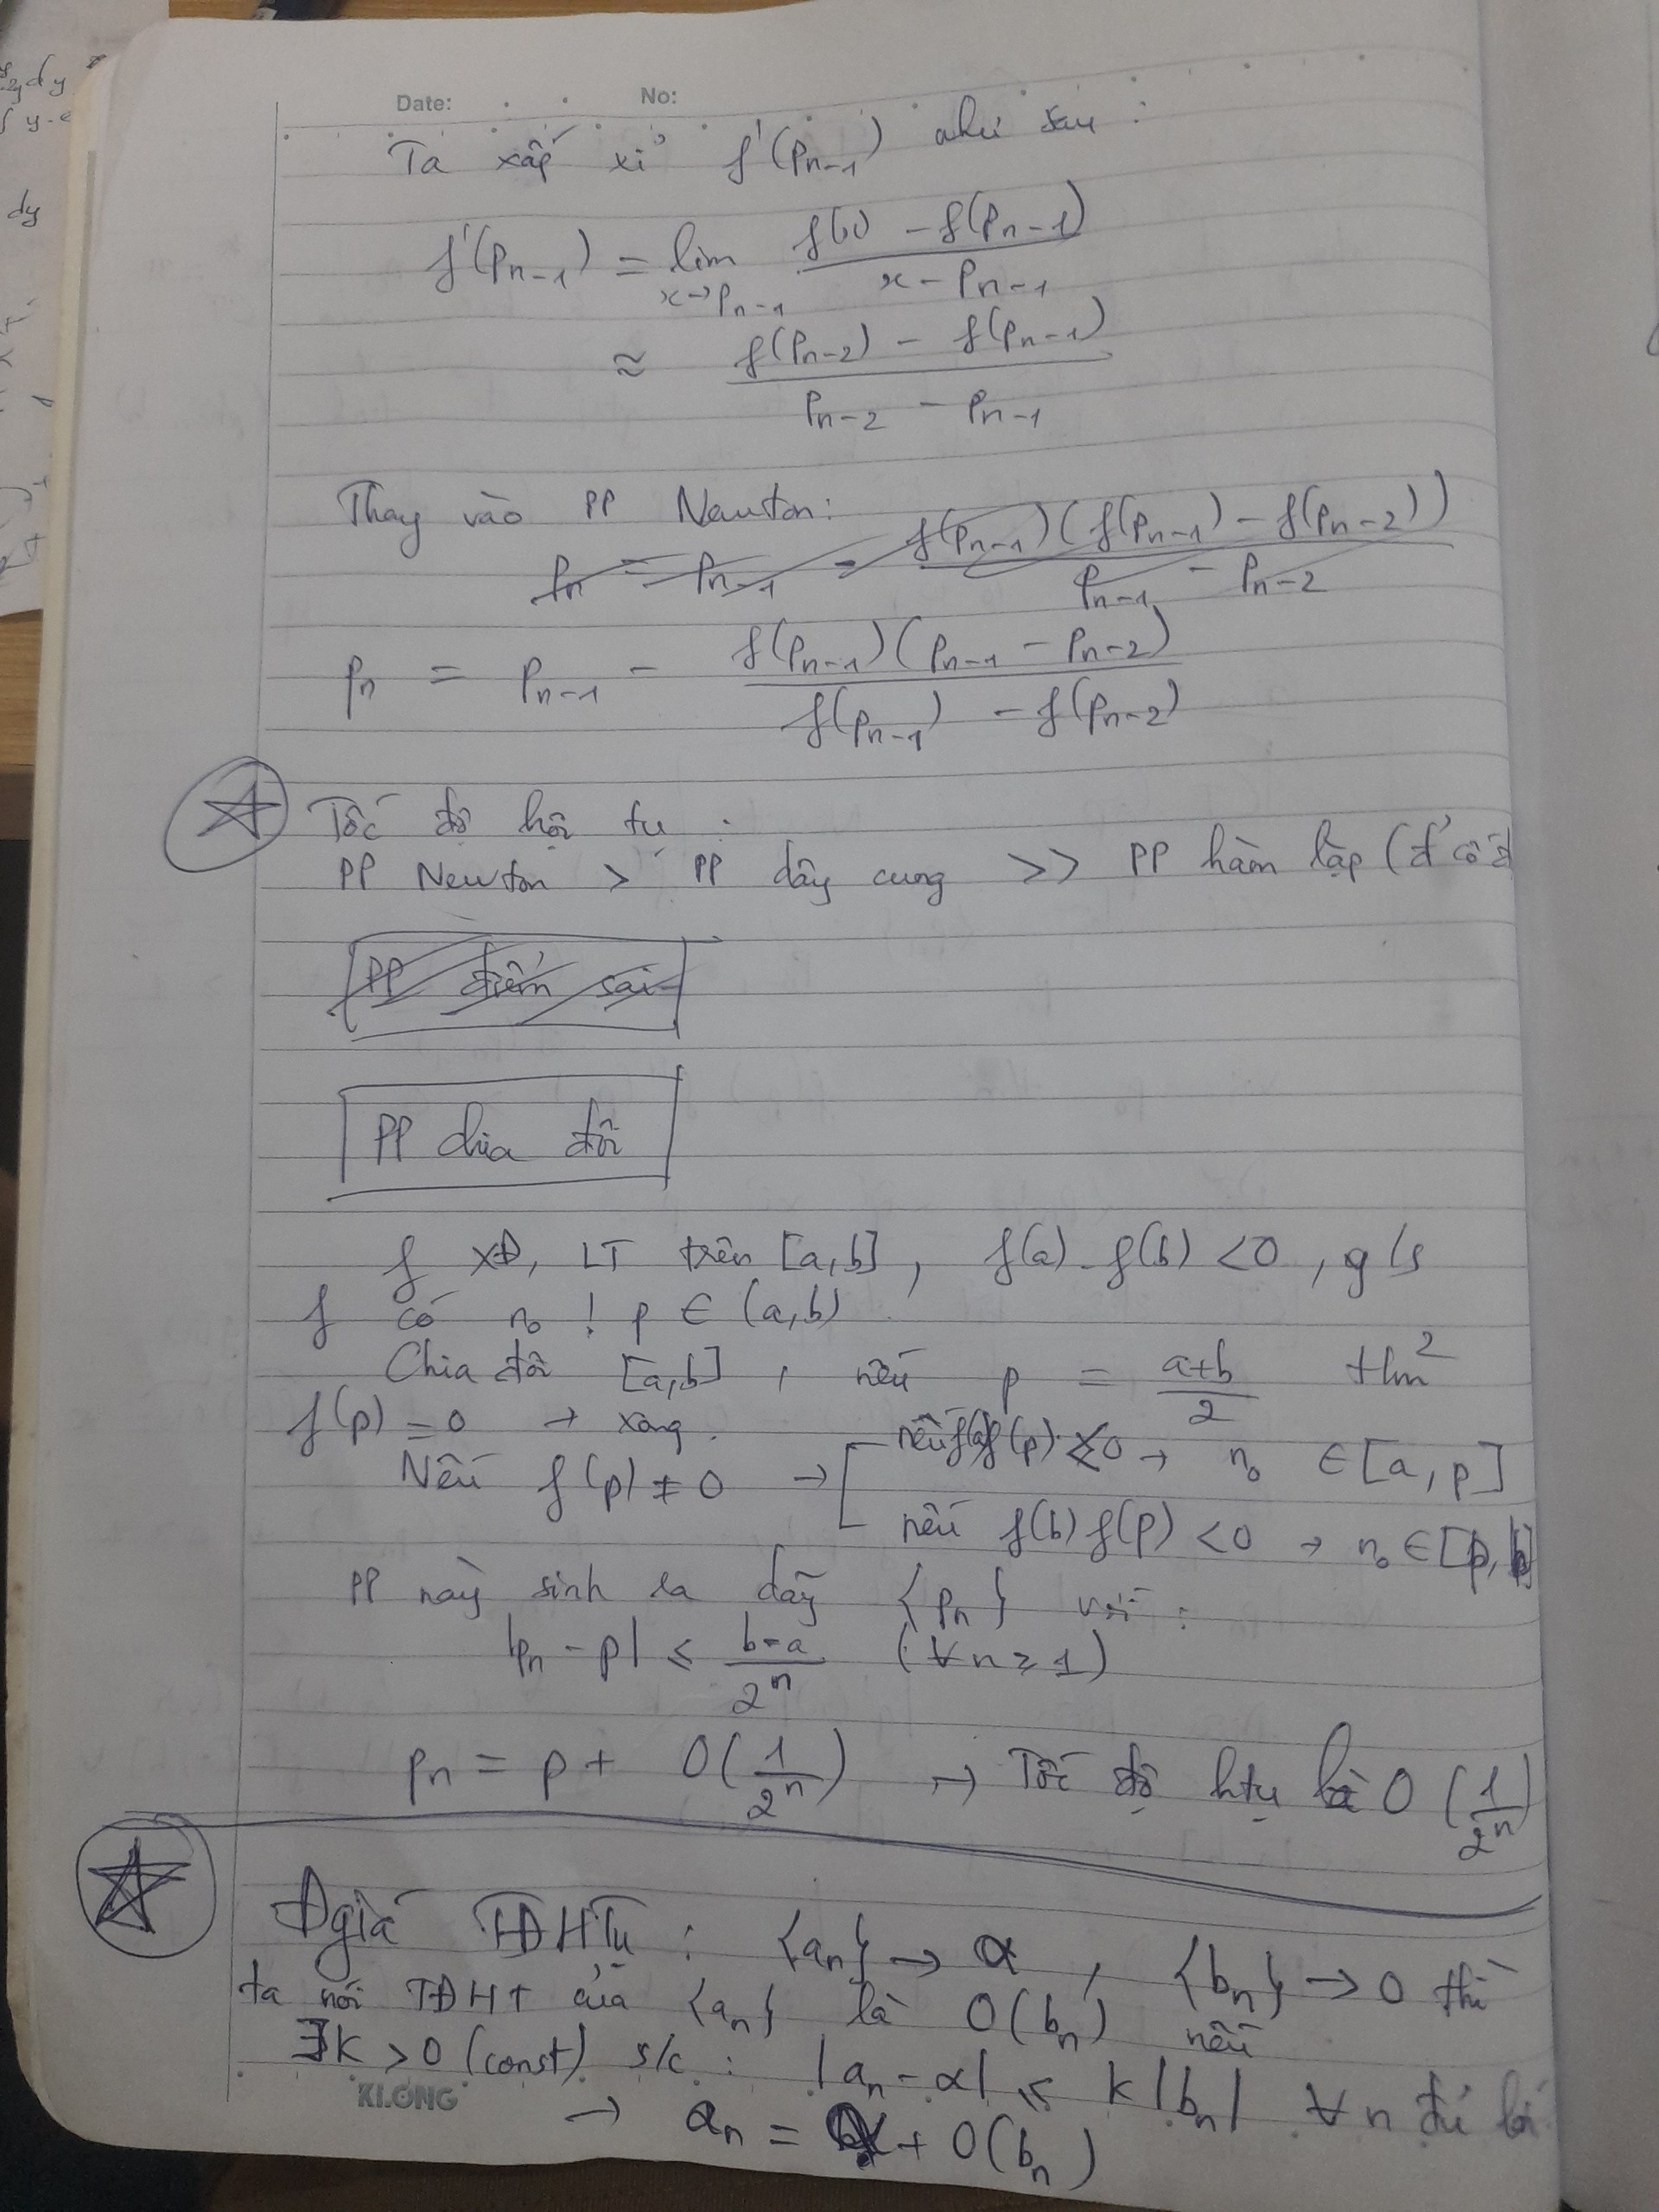 Date: No:
Ta xấp xỉ f'(pₙ₋₁) như sau :
f'(pₙ₋₁) = lim x→pₙ₋₁ (f(x) - f(pₙ₋₁)) / (x - pₙ₋₁)
≈ (f(pₙ₋₂) - f(pₙ₋₁)) / (pₙ₋₂ - pₙ₋₁)
Thay vào PP Newton:
pₙ = pₙ₋₁ - f(pₙ₋₁)(f(pₙ₋₁) - f(pₙ₋₂)) / (pₙ₋₁ - pₙ₋₂)
pₙ = pₙ₋₁ - f(pₙ₋₁)(pₙ₋₁ - pₙ₋₂) / (f(pₙ₋₁) - f(pₙ₋₂))
Tốc độ hội tụ :
PP Newton > PP dây cung >> PP hàm lặp (đ' cố đ
PP điểm sai
PP chia đôi
f XĐ, LT trên [a,b], f(a).f(b) <0, g/s
f có n₀ ! p ∈ (a,b)
Chia đôi [a,b], nếu p = (a+b)/2 thm²
f(p) = 0 → xong.
Nếu f(p) ≠ 0 → nếu f(a)f(p) <0 → n₀ ∈ [a,p]
nếu f(b)f(p) <0 → n₀ ∈ [p,b]
PP này sinh ra dãy {pₙ} với :
|pₙ - p| ≤ (b-a)/2ⁿ (∀n≥1)
pₙ = p + O(1/2ⁿ) → Tốc độ htụ là O(1/2ⁿ)
Đgiá TĐHTụ : {aₙ} → α, {bₙ} → 0 thì
ta nói TĐHT của {aₙ} là O(bₙ) nếu
∃K >0 (const) s/c : |aₙ - α| ≤ K|bₙ| ∀n đủ lớ
KLONG
→ aₙ = α + O(bₙ)